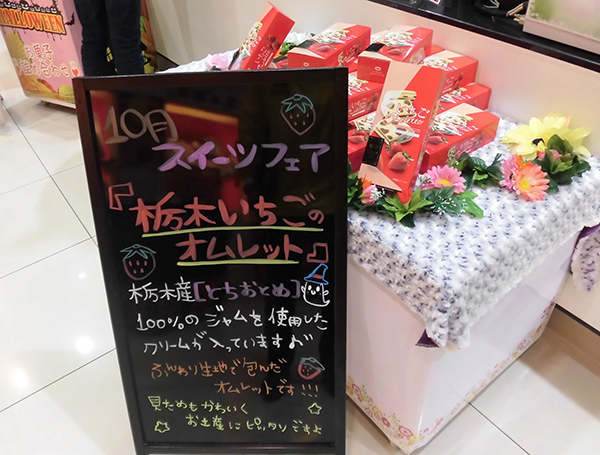 HALLOWEEN
10月
スイーツフェア
『栃木いちごの
オムレット』
栃木産[とちおとめ]
100%のジャムを使用した
クリームが入っています♪
ふんわり生地で包んだ
オムレットです!!!
見ためもかわいく
お土産にピッタリですよ